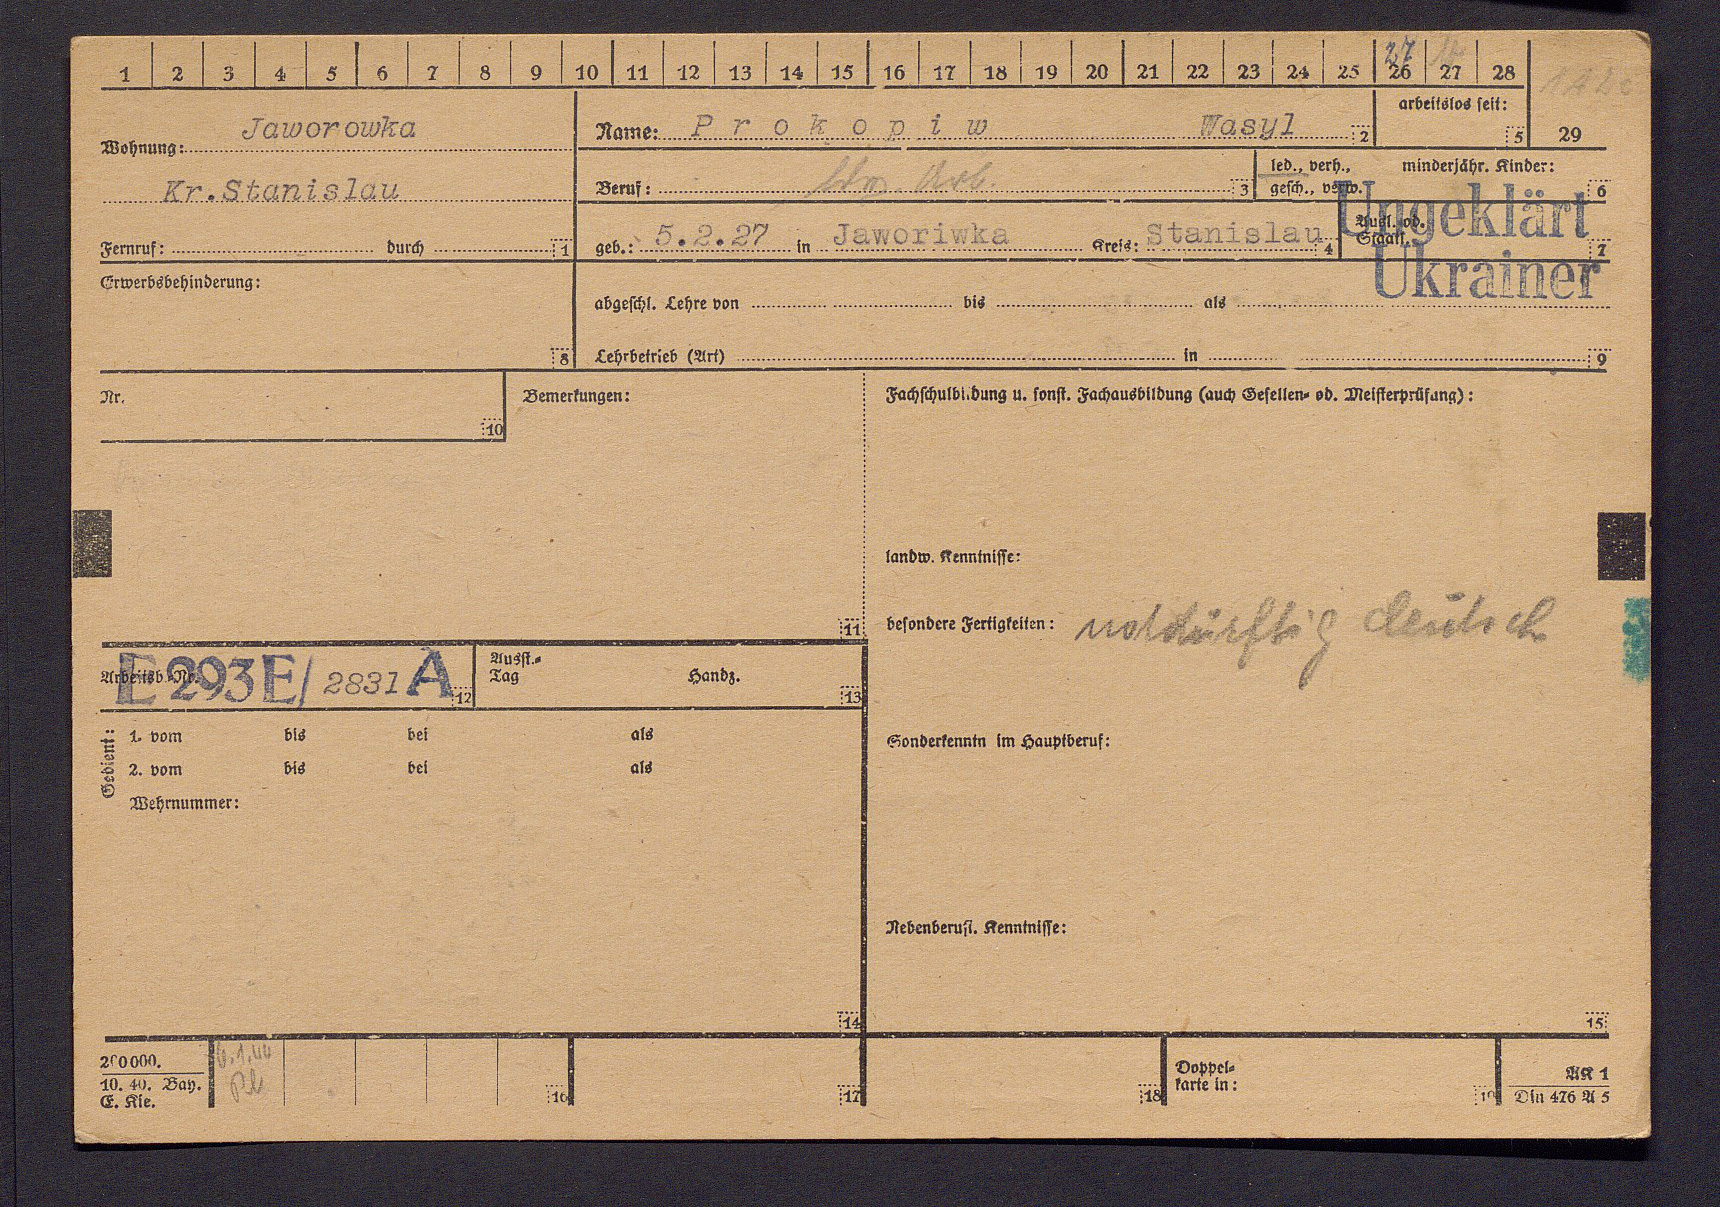 1 2 3 4 5 6 7 8 9 10 11 12 13 14 15 16 17 18 19 20 21 22 23 24 25 26 27 28
27
arbeitslos seit:
5
29
Jaworowka
Wohnung:
Kr.Stanislau
Fernruf: durch 1
Name: Prokopiw Wasyl 2
Beruf: Arb. 3
led., verh.,
gesch., verw.
minderjähr. Kinder:
6
geb.: 5.2.27 in Jaworiwka Kreis: Stanislau 4
Ausl. od.
Staatl.
7
Ungeklärt
Ukrainer
Erwerbsbehinderung:
8
abgeschl. Lehre von bis als
Lehrbetrieb (Art) in 9
Nr.
10
Bemerkungen:
11
Fachschulbildung u. sonst. Fachausbildung (auch Gesellen- od. Meisterprüfung):
landw. Kenntnisse:
besondere Fertigkeiten: notdürftig deutsch
Sonderkenntn im Hauptberuf:
Nebenberufl. Kenntnisse:
15
Arbeitsb. Nr.
E 293E/ 2831 A 12
Ausst.-
Tag
Handz.
13
Gedient:
1. vom bis bei als
2. vom bis bei als
Wehrnummer:
14
200000.
10. 40. Bay.
E. Kie.
6.1.44
16
17
18
Doppel-
karte in:
19
AK 1
Din 476 A 5